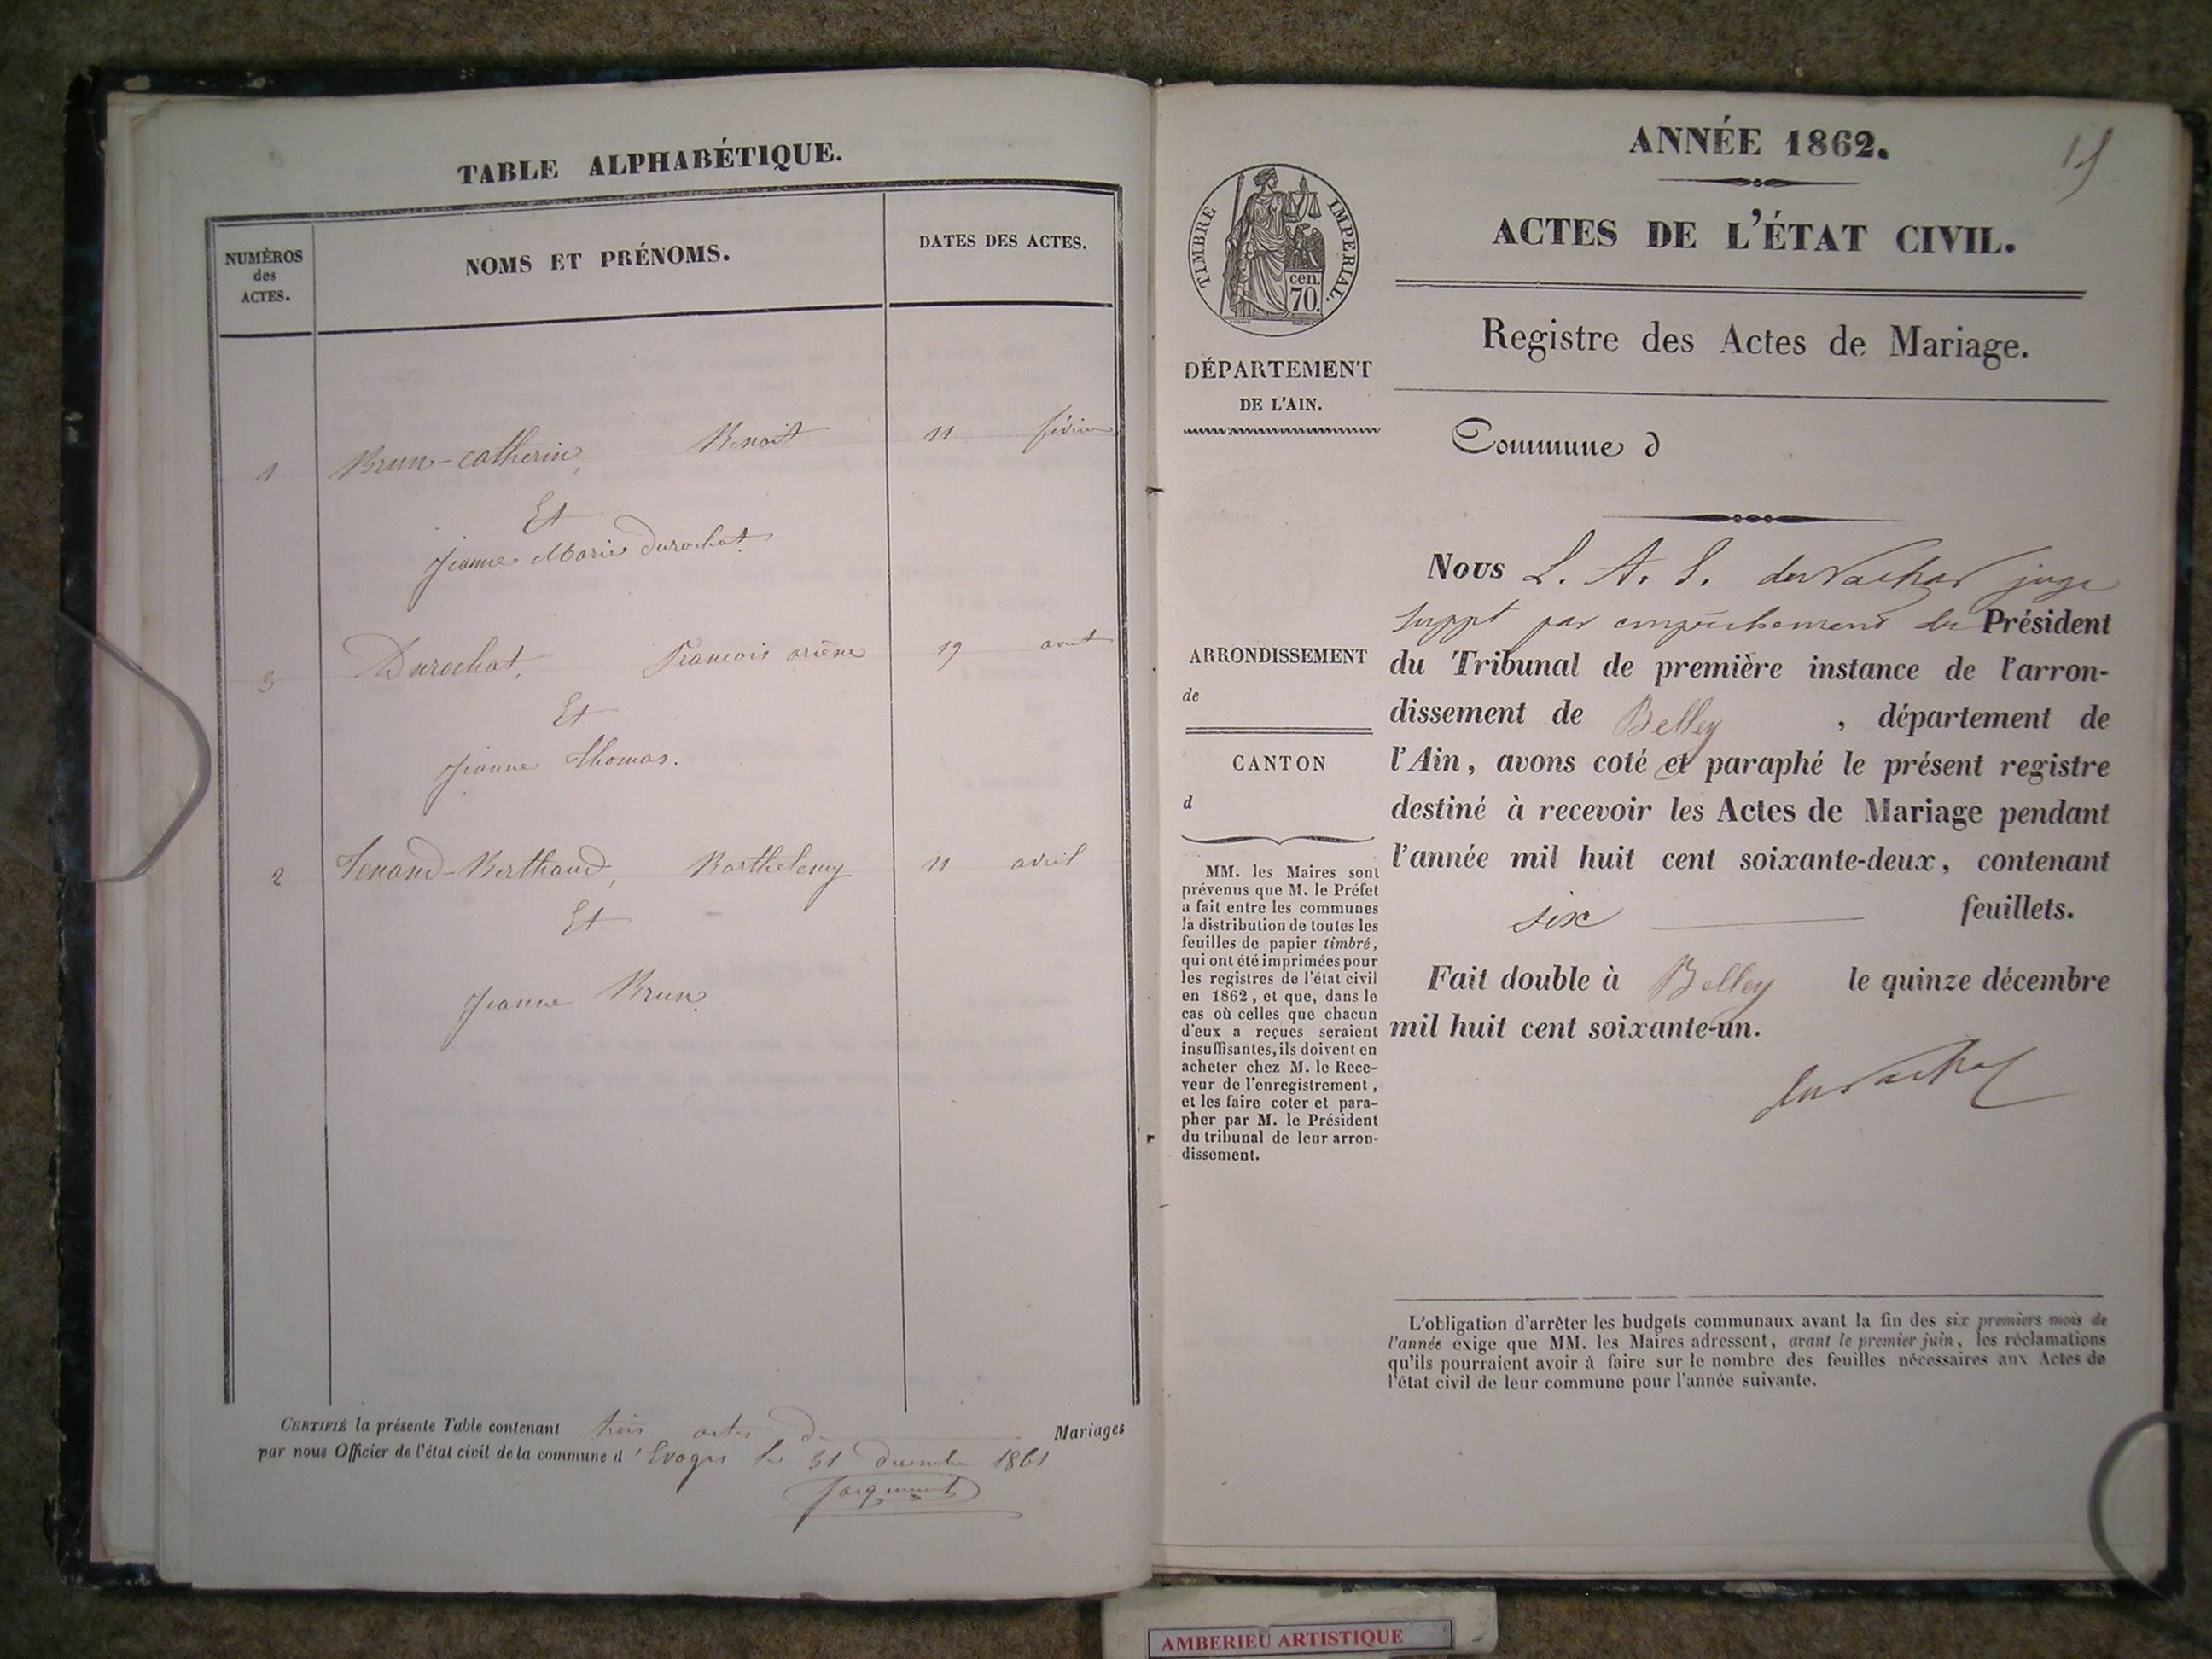 TABLE ALPHABÉTIQUE.
NUMÉROS
des
ACTES.
NOMS ET PRÉNOMS.
DATES DES ACTES.
1 Brun-catherin, Benoit 11 février
Et
Jeanne Marie Durochat
3 Durochat, François 19 aout
Et
Jeanne Thomas.
2 Tenand-Berthaud, Barthelemy 11 avril
Et
Jeanne Brun
CERTIFIÉ la présente Table contenant trois actes d Mariages
par nous Officier de l'état civil de la commune d'Evoges le 31 decembre 1861
Jacquemet
ANNÉE 1862.
ACTES DE L'ÉTAT CIVIL.
Registre des Actes de Mariage.
TIMBRE IMPÉRIAL.
cen.
70.
DÉPARTEMENT
DE L'AIN.
Commune d
ARRONDISSEMENT
de
CANTON
d
MM. les Maires sont
prévenus que M. le Préfet
a fait entre les communes
la distribution de toutes les
feuilles de papier timbré,
qui ont été imprimées pour
les registres de l'état civil
en 1862, et que, dans le
cas où celles que chacun
d'eux a reçues seraient
insuffisantes, ils doivent en
acheter chez M. le Rece-
veur de l'enregistrement,
et les faire coter et para-
pher par M. le Président
du tribunal de leur arron-
dissement.
Nous L. A. S. juge
suppt par empêchement du Président
du Tribunal de première instance de l'arron-
dissement de Belley , département de
l'Ain, avons coté et paraphé le présent registre
destiné à recevoir les Actes de Mariage pendant
l'année mil huit cent soixante-deux, contenant
six feuillets.
Fait double à Belley le quinze décembre
mil huit cent soixante-un.
L'obligation d'arrêter les budgets communaux avant la fin des six premiers mois de
l'année exige que MM. les Maires adressent, avant le premier juin, les réclamations
qu'ils pourraient avoir à faire sur le nombre des feuilles nécessaires aux Actes de
l'état civil de leur commune pour l'année suivante.
AMBERIEU ARTISTIQUE